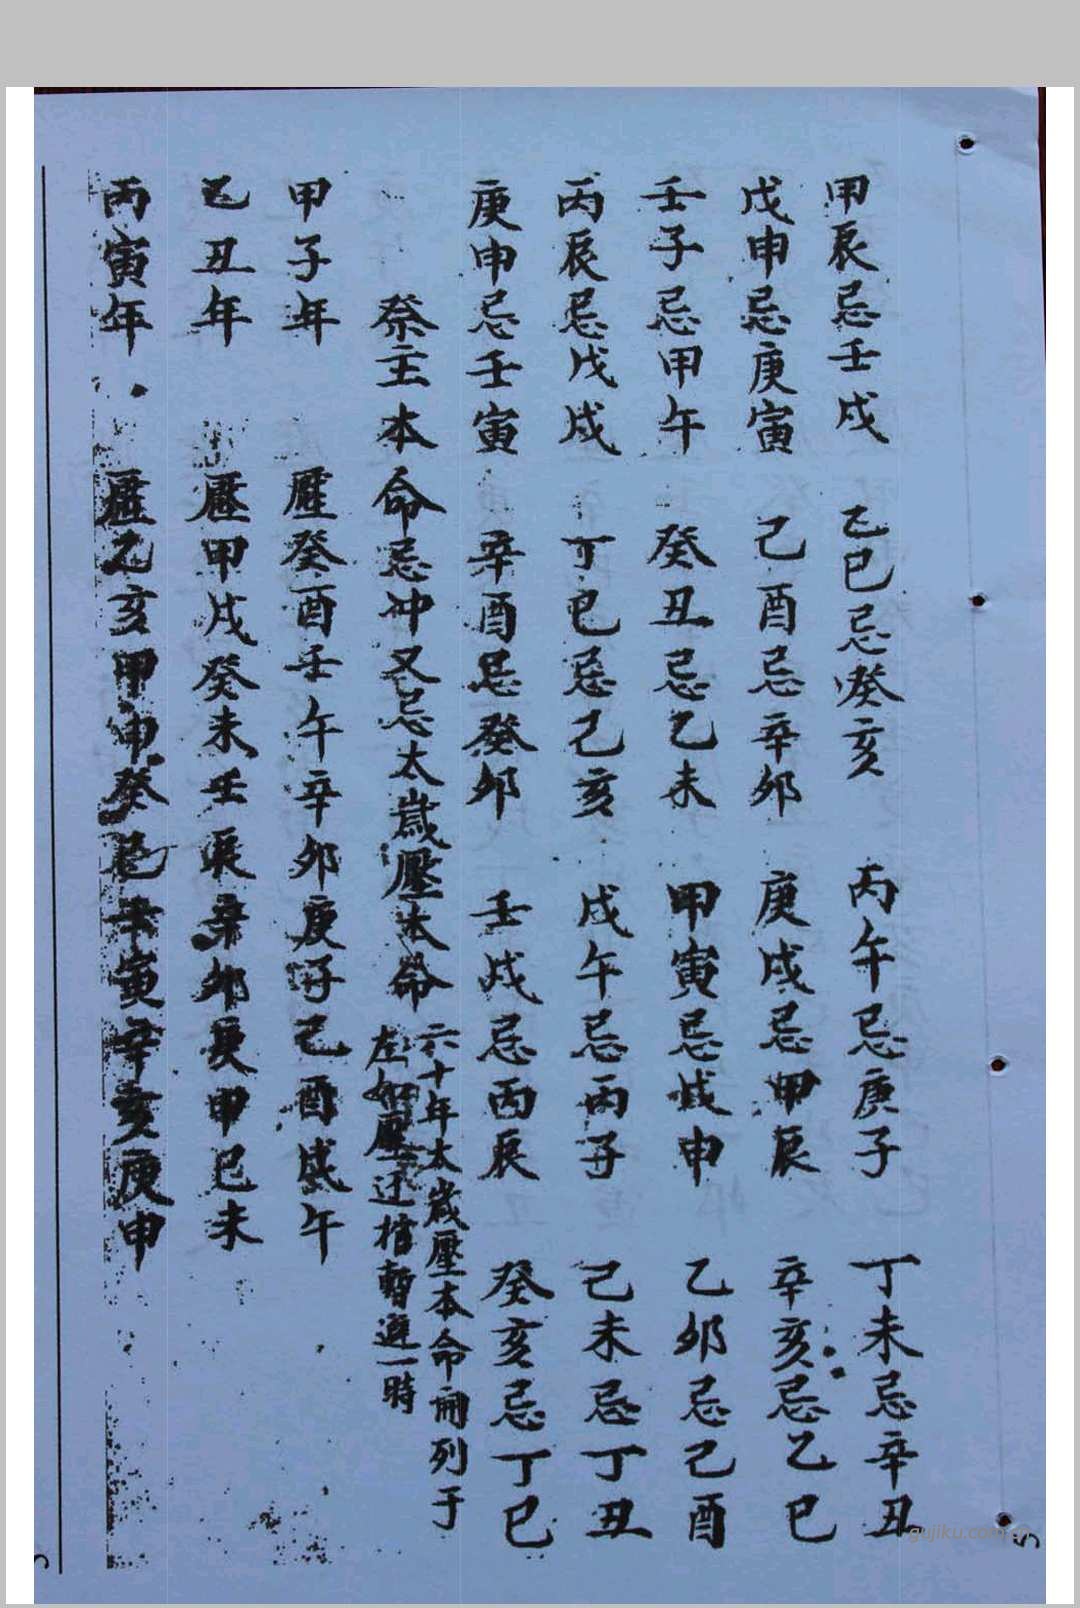 甲辰忌壬戌 乙巳忌癸亥 丙午忌庚子 丁未忌辛丑
戊申忌庚寅 己酉忌辛卯 庚戌忌甲辰 辛亥忌乙巳
壬子忌甲午 癸丑忌乙未 甲寅忌戊申 乙卯忌己酉
丙辰忌戊戌 丁巳忌己亥 戊午忌丙子 己未忌丁丑
庚申忌壬寅 辛酉忌癸卯 壬戌忌丙辰 癸亥忌丁巳
祭主本命忌冲又忌太歲壓本命
六十年太歲壓本命開列于
左如壓还棺暫避一時
甲子年 壓癸酉壬午辛卯庚子己酉戊午
乙丑年 壓甲戌癸未壬辰辛卯庚申己未
丙寅年 壓乙亥甲申癸巳壬寅辛亥庚申
gujiku.com
5